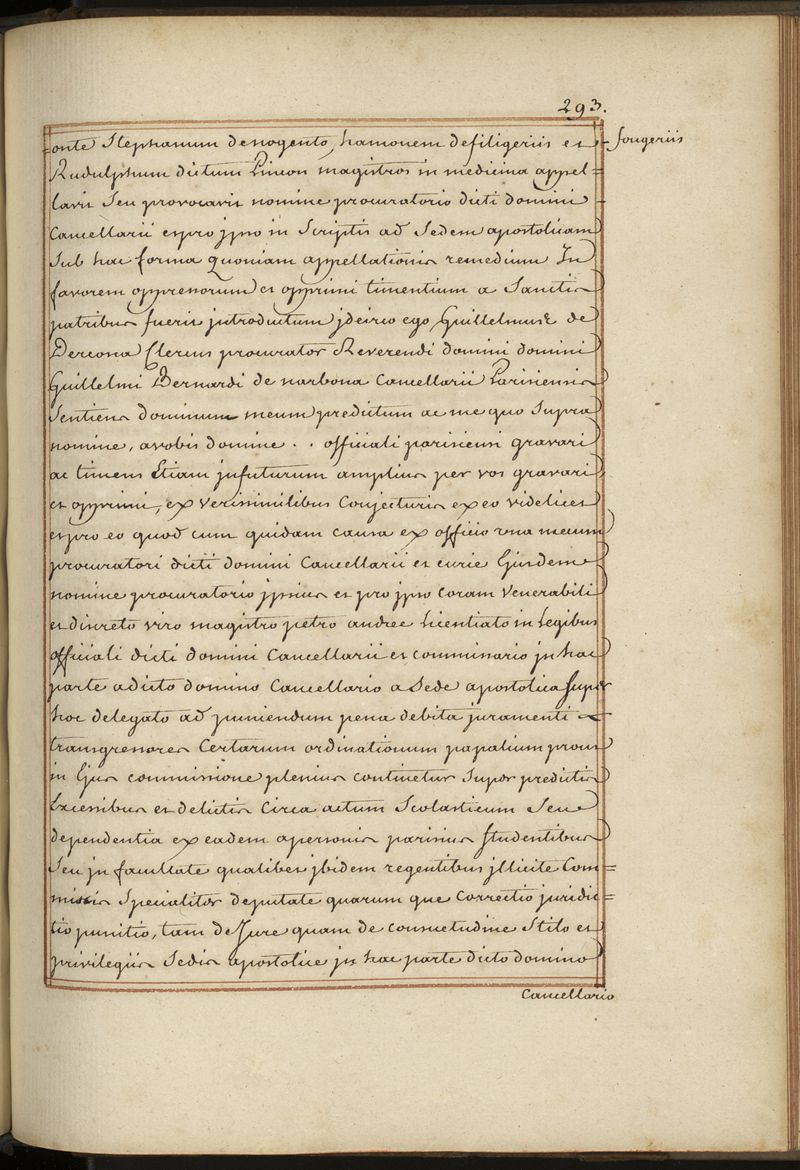 293.
onte Stephanum denogento, hamonem defiligeriis et fougeriis
Rudulphum dictum Pinon magistros in medicina appel=
lavit seu provocavit nomine procuratorio dicti domini
Cancellarii et pro ipso in Scriptis ad Sedem apostolicam
Sub hac forma quoniam appellationis remedium In
favorem oppressorum et opprimi timentium a Sanctis
patribus fuerit introductum jdcirco ego Guillelmus de
Dercona Clericus procurator Reverendi domini domini
Guillelmi Bernardi de narbona Cancellarii Parisiensis
Sentiens dominum meum predictum ac me quo Supra
nomine, avobis domine . . officiali parisiensi gravari
ac timens Etiam jnfuturum amplius per vos gravari
et opprimi, ex verisimilibus Conjecturis ex eo videlicet
et pro eo quod cum quidam causa ex officio una mecum
procuratori dicti domini Cancellarii et curie Ejusdem
nomine procuratorio jpsius et pro jpso coram Venerabili
et discreto viro magistro petro andree Licentiato in Legibus
officiali dicti domini Cancellarii et commissario jn hac
parte adicto domino Cancellario a Sede apostolica super
hoc delegato ad puniendum pena debita juramenti
transgressores Certarum ordinationum papalium prout
in Ejus commissione plenius continetur Super predictis
Excessibus et delictis Circa actum Scolasticum Seu
dependentia ex eadem apersonis parisius studentibus
Seu jn facultate qualibet jbidem regentibus jllicite Com=
missis Specialiter deputate quarum que Correctio juridic=
tio punitio, tam de Jure quam de consuetudine Stilo et
privilegiis Sedis apostolice jn hac parte dicto domino
Cancellario